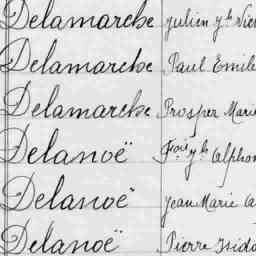 Delamarche Julien
Delamarche Paul Emile
Delamarche Prosper Marie
Delanoë
Delanoë Jean Marie
Delanoë Pierre Isido